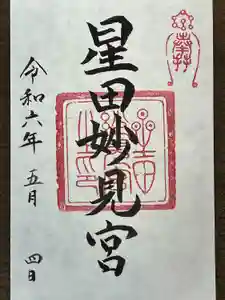 星田妙見宮
令和六年 五月 四日